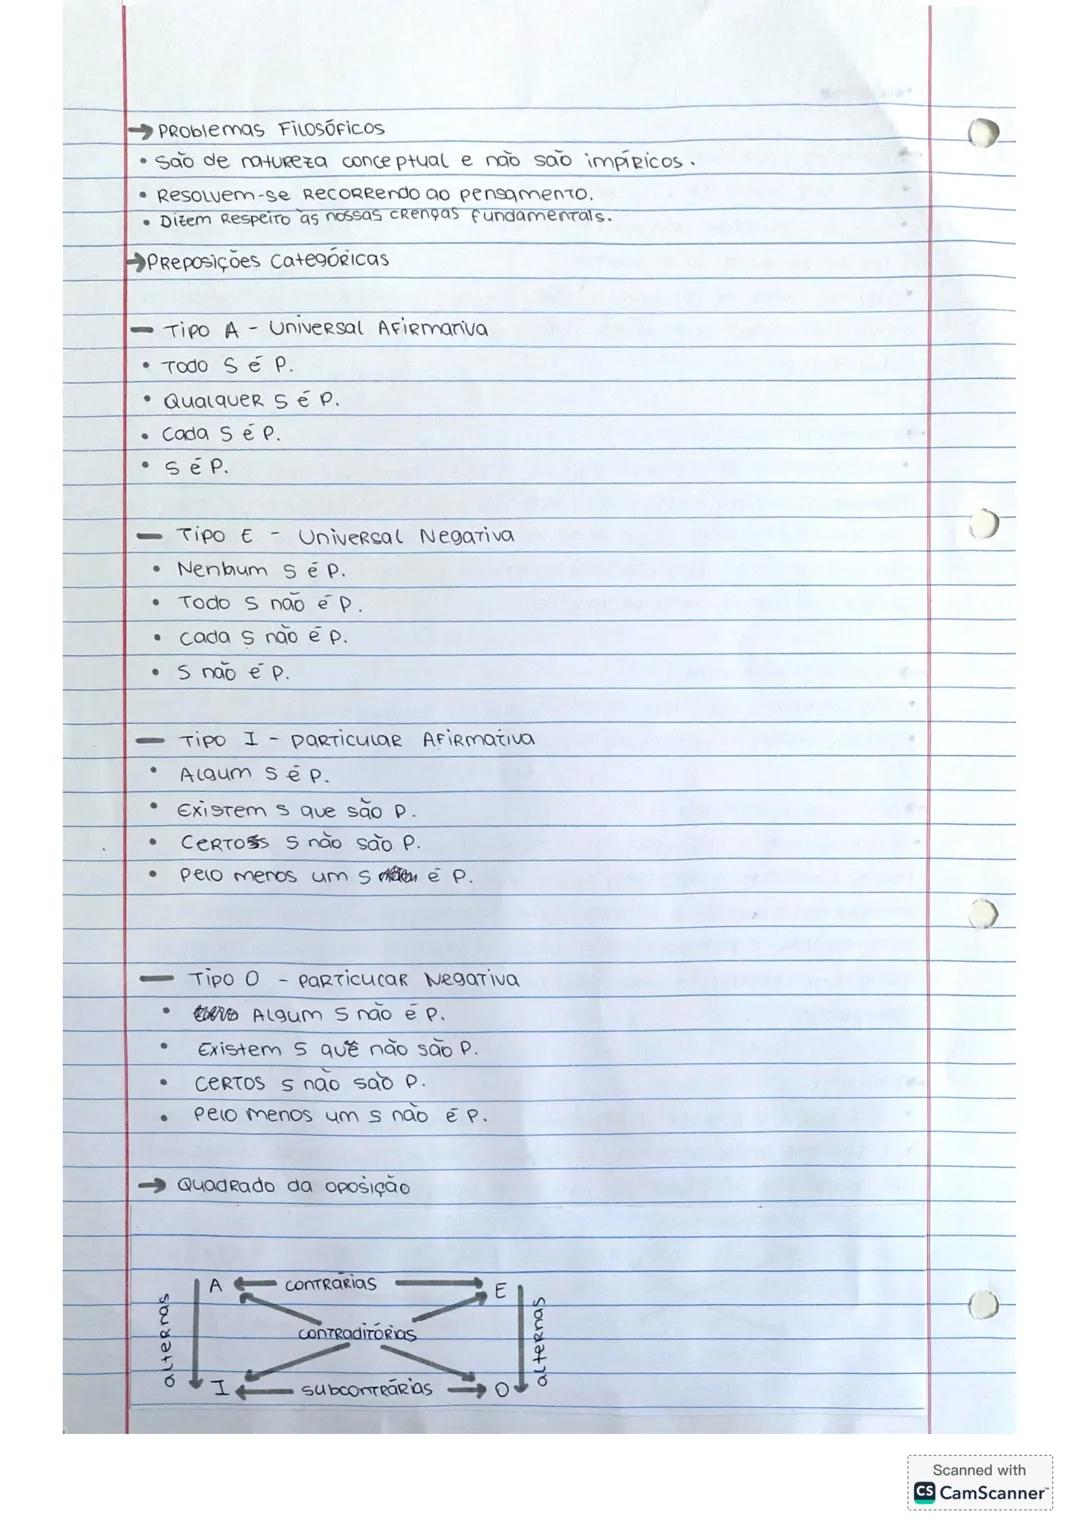 → Problemas Filosóficos
• São de natureza conceptual e não são impíricos.
• Resolvem-se recorrendo ao pensamento.
• Dizem respeito às nossas crenças fundamentais.
→ Preposições Categóricas
— Tipo A - Universal Afirmativa
• Todo S é P.
• Qualquer S é P.
• Cada S é P.
• S é P.
— Tipo E - Universal Negativa
• Nenhum S é P.
• Todo S não é P.
• Cada S não é P.
• S não é P.
— Tipo I - Particular Afirmativa
• Algum S é P.
• Existem S que são P.
• Certos S não são P.
• Pelo menos um S é P.
— Tipo O - Particular Negativa
• Algum S não é P.
• Existem S que não são P.
• Certos S não são P.
• Pelo menos um S não é P.
→ Quadrado da oposição
A contrárias E
alternas contraditórias alternas
I subcontrárias O
Scanned with
CS CamScanner™